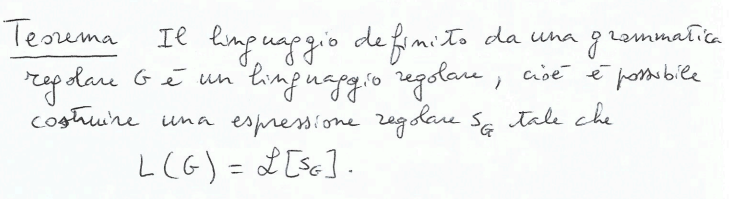 Teorema Il linguaggio definito da una grammatica
regolare G è un linguaggio regolare, cioè è possibile
costruire una espressione regolare s_G tale che
L(G) = ℒ[s_G].